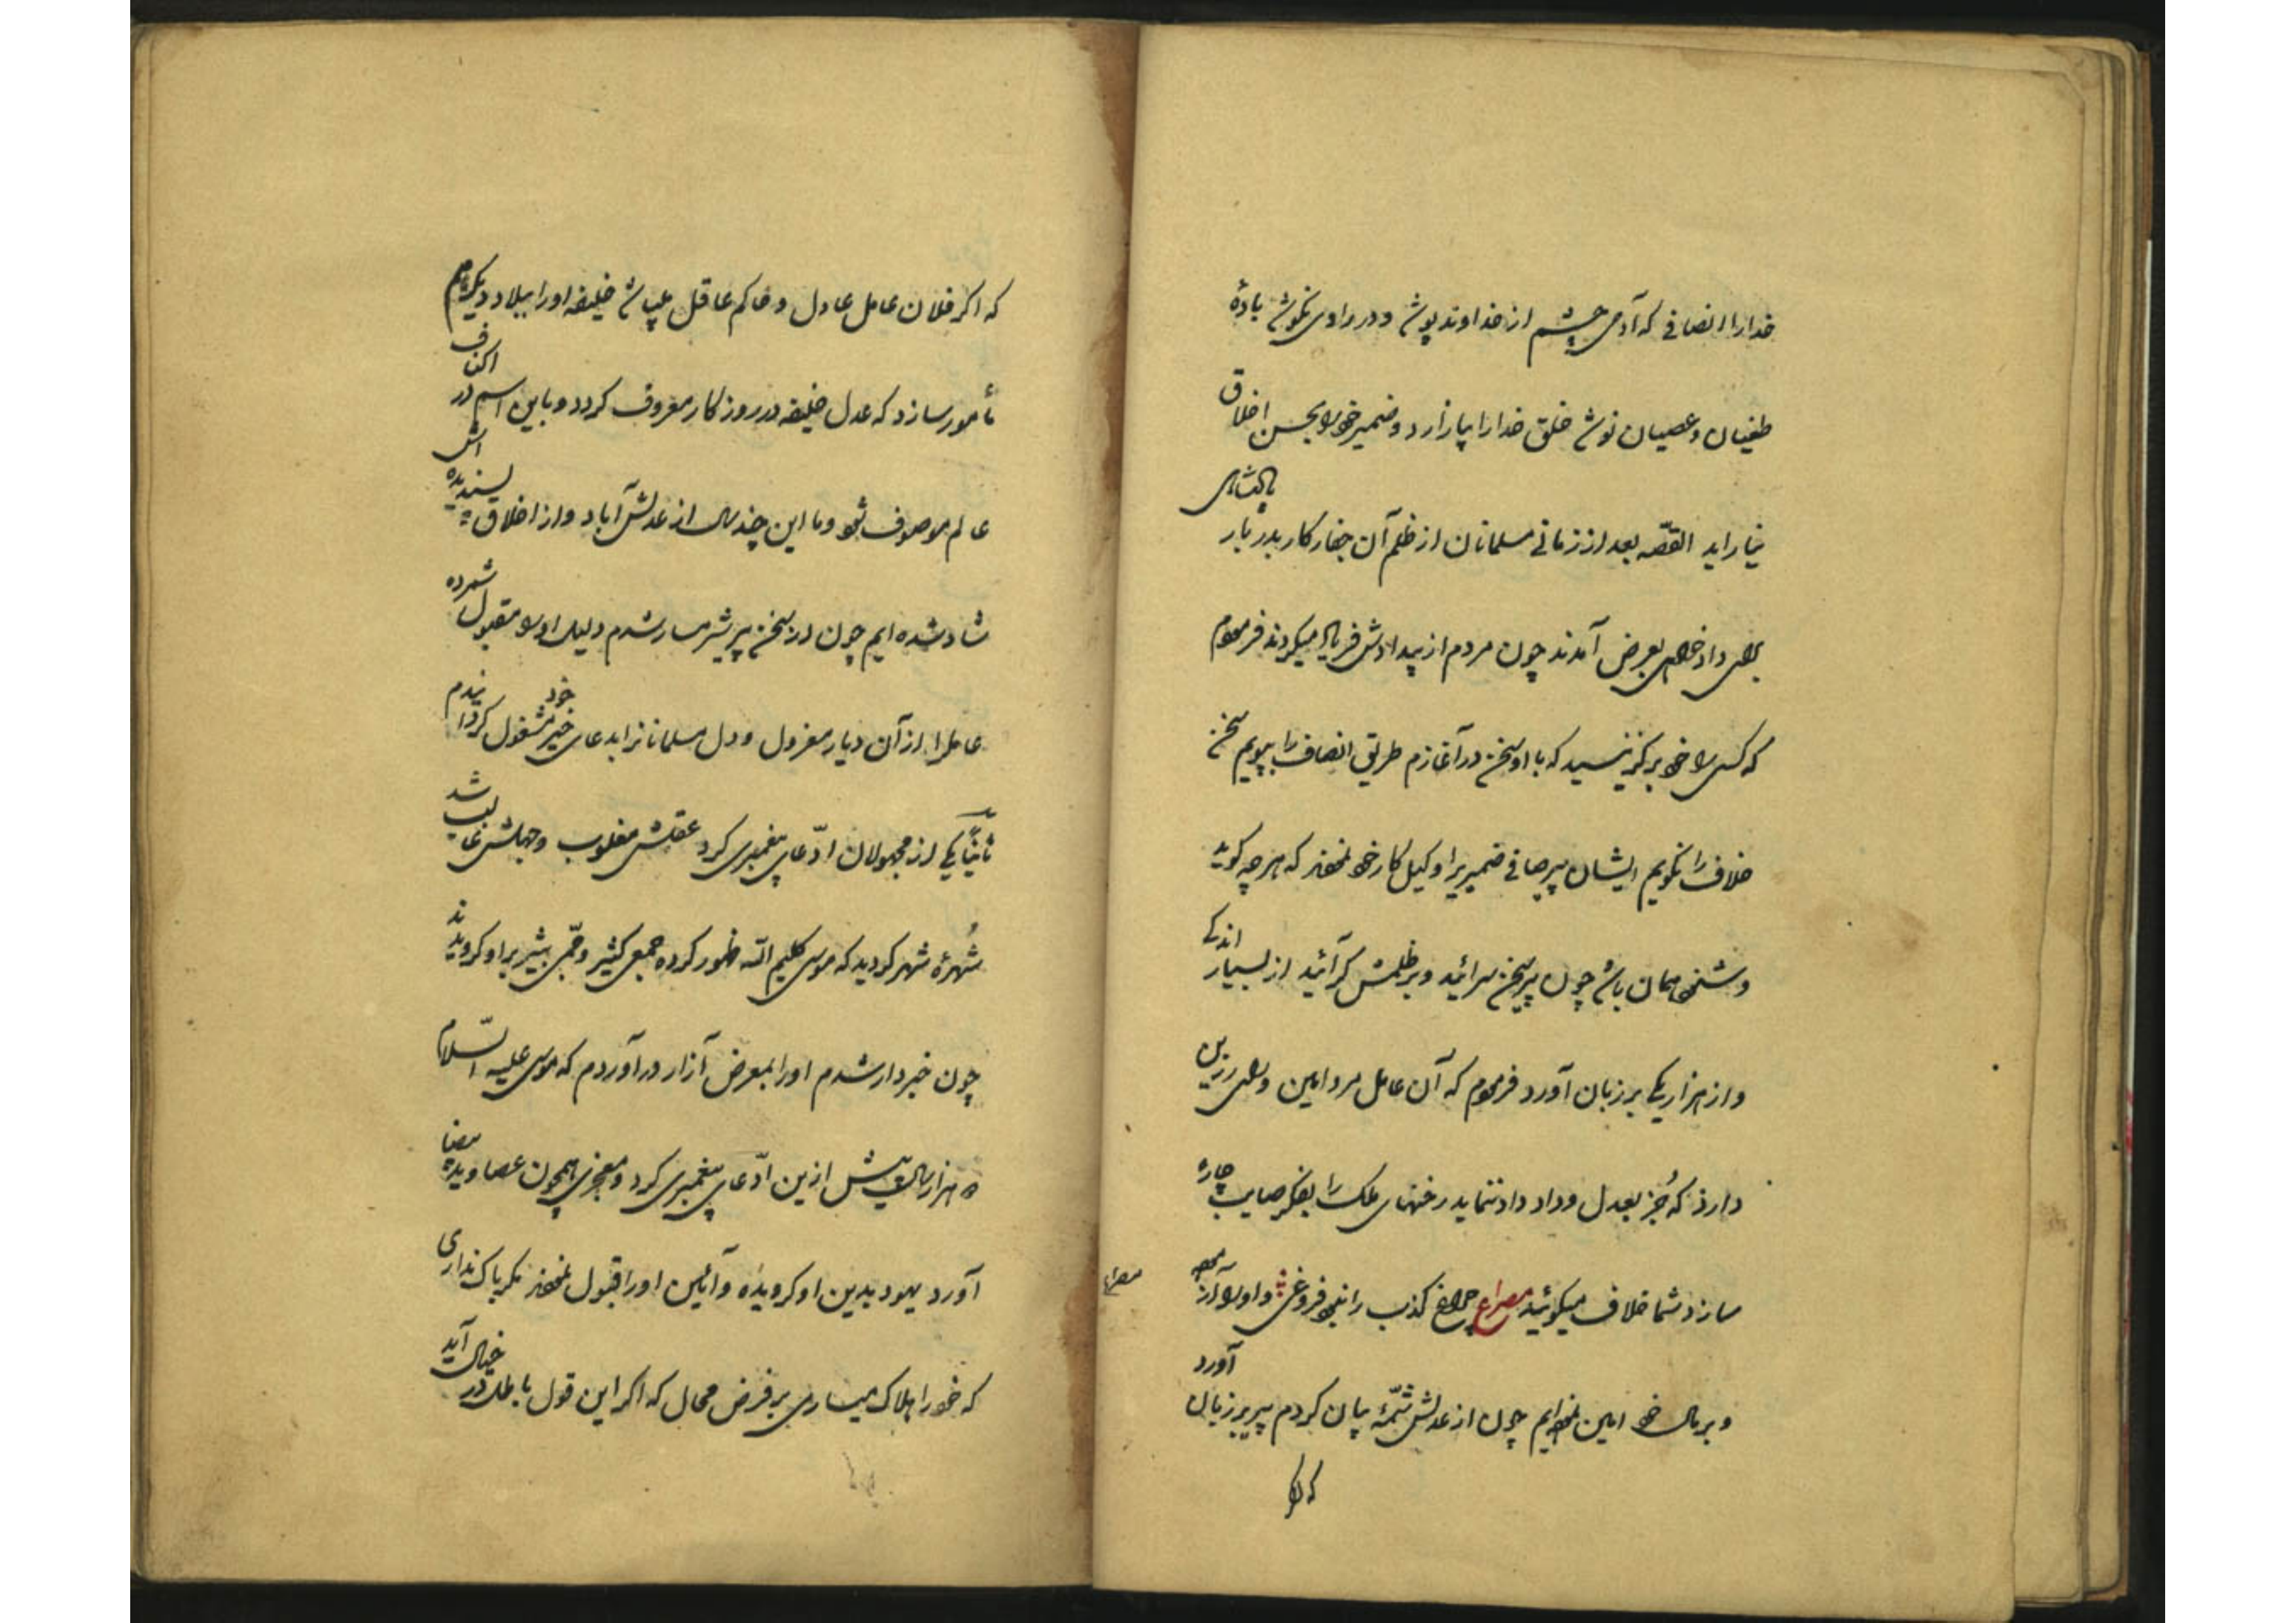 خدارا انصافی که آدمی چشم از خداوند پوشد و در راوی نکوشد بادهٔ
طغیان و عصیان نوشد خلق خدارا بیازارد و ضمیر خود را بحسن اخلاق
نیاراید القصّه بعد از زمانی مسلمانان از ظلم آن جفارکار بدربار پادشاهی
برای دادخواهی بعرض آمدند چون مردم از بیدادش فریاد میکردند فرمودم
که کسی را خود برگزینید که با او سخن در آغازم طریق انصاف را بپویم سخن
خلاف را نگویم ایشان پیر صافی ضمیریرا وکیل کار خود نمودند که هرچه گوید
و شنود همان باشد چون پیر سخن سرائید و بر ظلمش گرائید از بسیار اندکی
و از هزار یکی بر زبان آورد فرمودم که آن عامل مرد امین و رای رزین
دارد که جُز بعدل و داد داد ننماید رخنهای ملک را بفکر صایب چاره
سازد شما خلاف میگوئید مصراع چراغ کذب را نبود فروغی و او را آزموده
و بر مال خود امین نموده‌ایم چون از عدلش شمّهٔ بیان کردم پیر بر زبان آورد
که اگر
مصراع
که اگر فلان عامل عادل و حاکم عاقل میباشد خلیفه اورا ببلاد دیگر هم
مأمور سازد که عدل خلیفه در روزگار معروف گردد و باین اسم در اکناف
عالم موصوف شود و ما این چند سال از عدلش آباد و از اخلاق پسندیده اش
شاد شده ایم چون از سخن پیر شرمسار شدم دلیل او را مقبول شمرده
عاملرا از آن دیار معزول و دل مسلمانانرا بدعای خیر خود مشغول گردانیدم
ثانیاً یکی از مجهولان ادّعای پیغمبری کرد عقلش مغلوب و جهلش غالب شد
شُهرهٔ شهر گردید که موسی کلیم الله ظهور کرده جمعی کثیر و جمّی بشیر براو گرویدند
چون خبردار شدم اورا بمعرض آزار درآوردم که موسی علیه السّلام
هزار سال پیش ازین ادّعای پیغمبری کرد و معجزی همچون عصا و ید بیضا
آورد یهود بدین او گرویده و آئین اورا قبول نمودند مگر باک نداری
که خودرا هلاک میسازی بر فرض محال که اگر این قول باطل در خیال آید